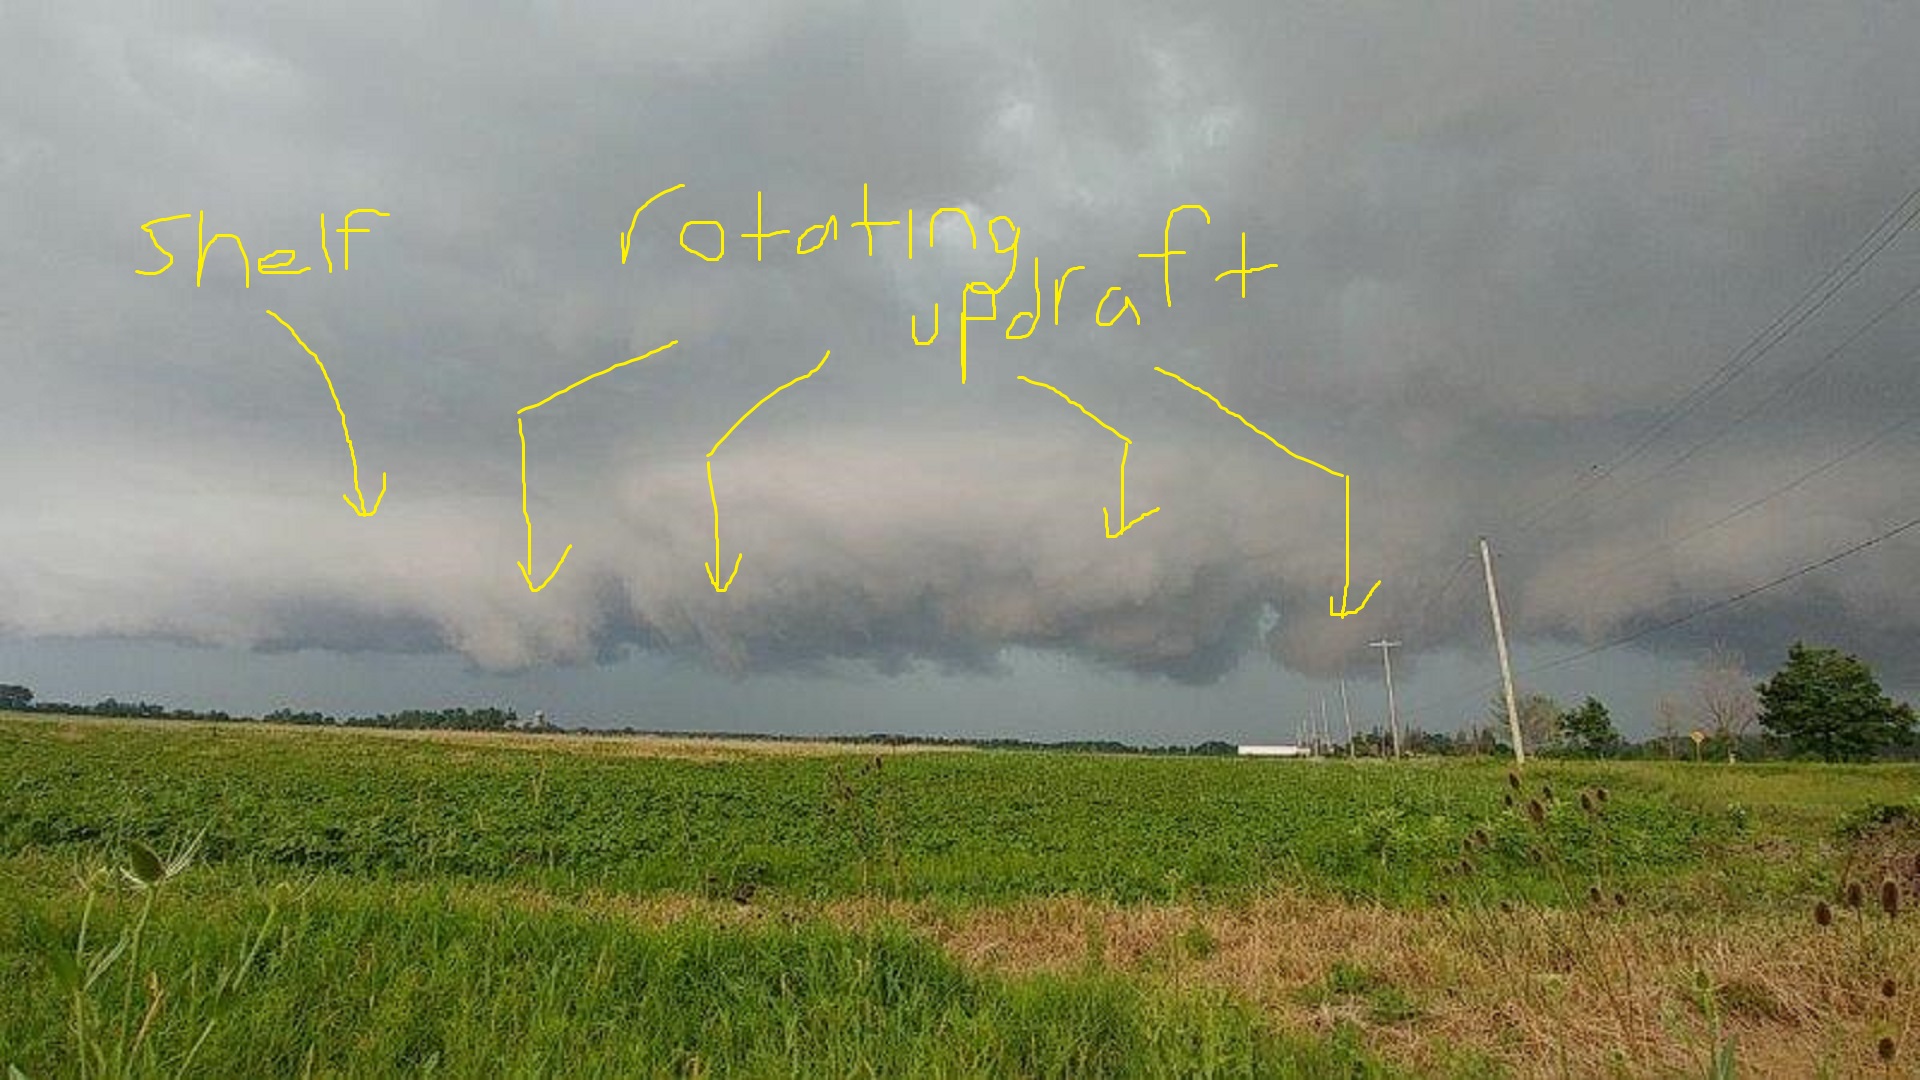 shelf
rotating
updraft